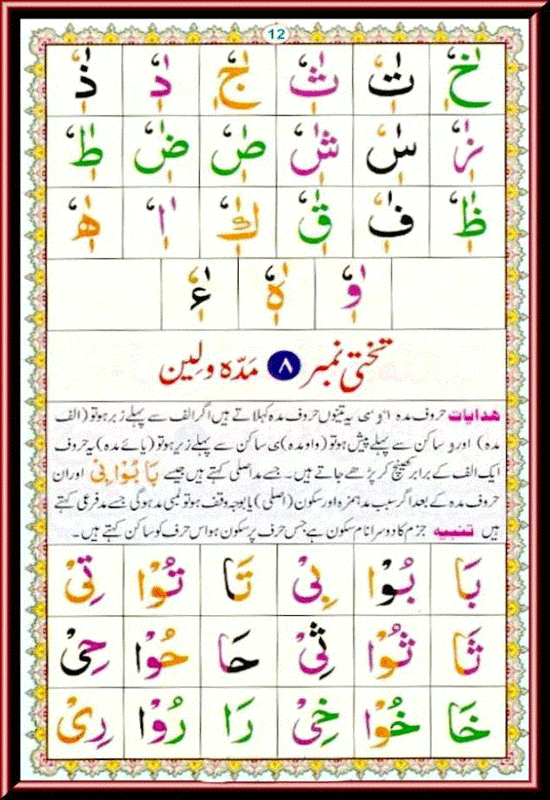 12
خٰٖٗ تٰٖٗ ثٰٖٗ جٰٖٗ دٰٖٗ ذٰٖٗ
زٰٖٗ سٰٖٗ شٰٖٗ صٰٖٗ ضٰٖٗ طٰٖٗ
ظٰٖٗ فٰٖٗ قٰٖٗ كٰٖٗ اٰٖٗ هٰٖٗ
وٰٖٗ هٰٖٗ ءٰٖٗ
تختی نمبر ۸ مَدّہ ولِین
ھدایات حروف مدہ ا، و، ی یہ تینوں حروف مدہ کہلاتے ہیں اگر الف سے پہلے زبر ہو تو (الف
مدہ) اور و ساکن سے پہلے پیش ہو تو (واو مدہ) ی ساکن سے پہلے زیر ہو تو (یائے مدہ) یہ حروف
ایک الف کے برابر کھینچ کر پڑھے جاتے ہیں۔ جسے مد اصلی کہتے ہیں جیسے بَا بُوْا بِیْ اور ان
حروف مدہ کے بعد اگر سبب مد ہمزہ اور سکون (اصلی) یا بوجہ وقف ہو تو لمبی مد ہوگی جسے مد فرعی کہتے
ہیں تنبیہ جزم کا دوسرا نام سکون ہے جس حرف پر سکون ہو اس حرف کو ساکن کہتے ہیں۔
بَا بُوْا بِیْ تَا تُوْا تِیْ
ثَا ثُوْا ثِیْ حَا حُوْا حِیْ
خَا خُوْا خِیْ رَا رُوْا رِیْ